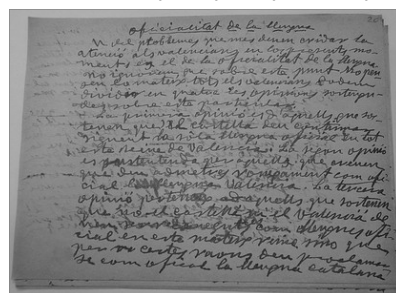 oficialitat de la llengua
U dels problemes que mes deuen cridar la
atenció als valencians en los presents mo-
ments es el de la oficialitat de la llengua.
No ignorem que sobre este punt no pen-
sen lo mateix tots els valencians. Poden
dividirse en quatre les opinions
sobre este particular.
La primera opinió es d'aquells que sos-
tenen que el castellà deu continuar
sient la unica llengua oficial en tot
este Reine de Valencia. La segon opinió
es sostentada per aquells que creuen
que deu admetres com ofi-
cial la llengua Valenciana. La tercera
opinió pertany ad aquells que sostenen
que no el castellà ni el valencià de
llengues ofi-
cial en este mateix reine sino que
per raons deu proclamar-
se com oficial la llengua catalana